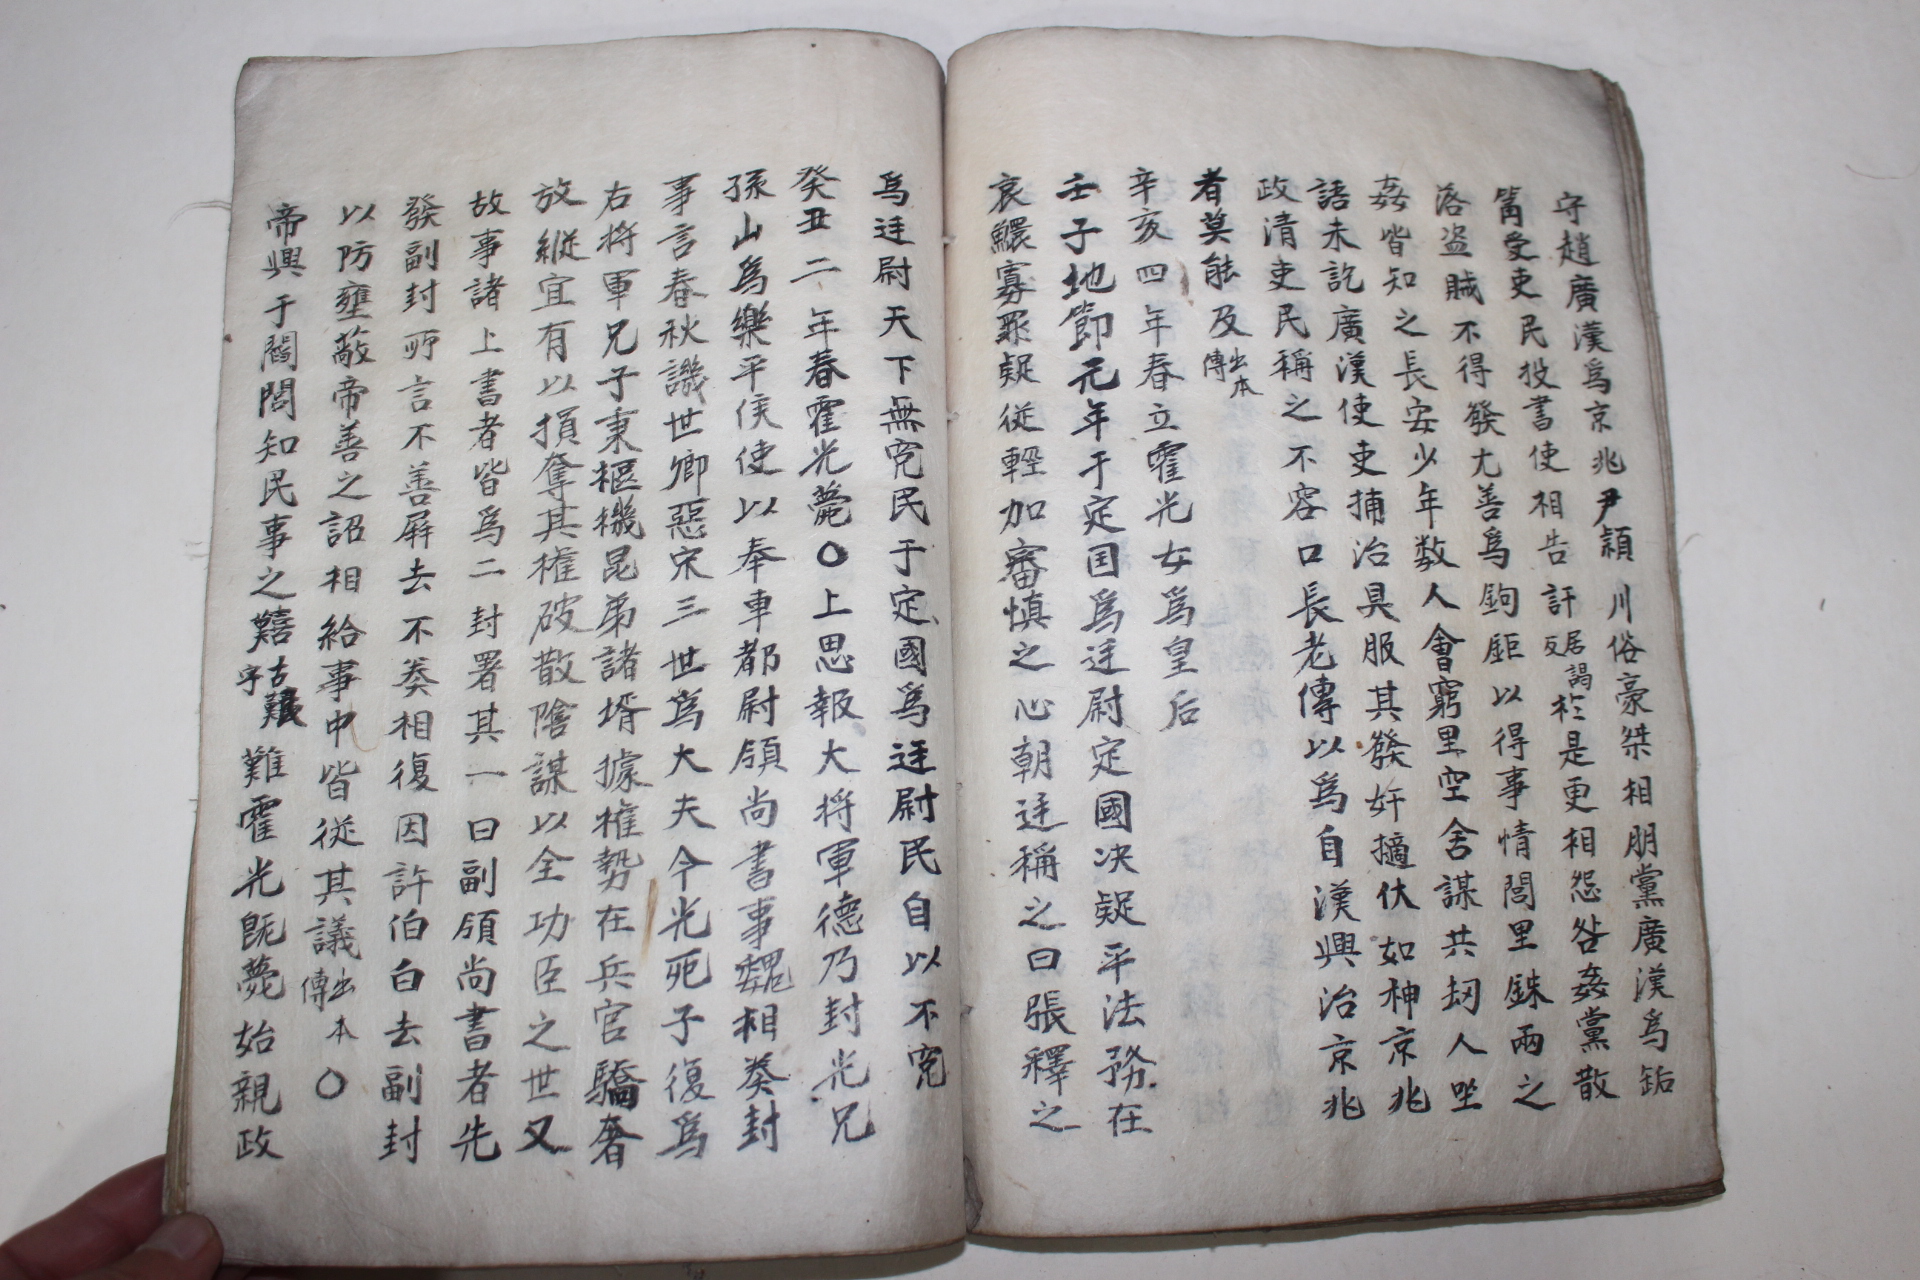 守趙廣漢爲京兆尹頴川俗豪桀相朋黨廣漢爲缿
筩受吏民投書使相告訐居謁反於是更相怨咎姦黨散
落盗賊不得發尤善爲鉤距以得事情閭里銖兩之
姦皆知之長安少年数人會窮里空舍謀共刼人坐
語未訖廣漢使吏捕治具服其發奸擿伏如神京兆
政清吏民稱之不容口長老傳以爲自漢興治京兆
者莫能及出本傳
辛亥四年春立霍光女爲皇后
壬子地節元年于定国爲廷尉定國决疑平法務在
哀鰥寡罪疑從輕加審慎之心朝廷稱之曰張釋之
爲廷尉天下無寃民于定國爲廷尉民自以不寃
癸丑二年春霍光薨〇上思報大将軍德乃封光兄
孫山爲樂平侯使以奉車都尉領尚書事魏相奏封
事言春秋譏世卿惡宋三世爲大夫今光死子復爲
右将軍兄子秉樞機昆弟諸壻據權勢在兵官驕奢
放縱宜有以損奪其權破散隂謀以全功臣之世又
故事諸上書者皆爲二封署其一曰副領尚書者先
發副封所言不善屏去不奏相復因許伯白去副封
以防壅蔽帝善之詔相給事中皆從其議出本傳〇
帝興于閭閻知民事之囏古艱字難霍光旣薨始親政